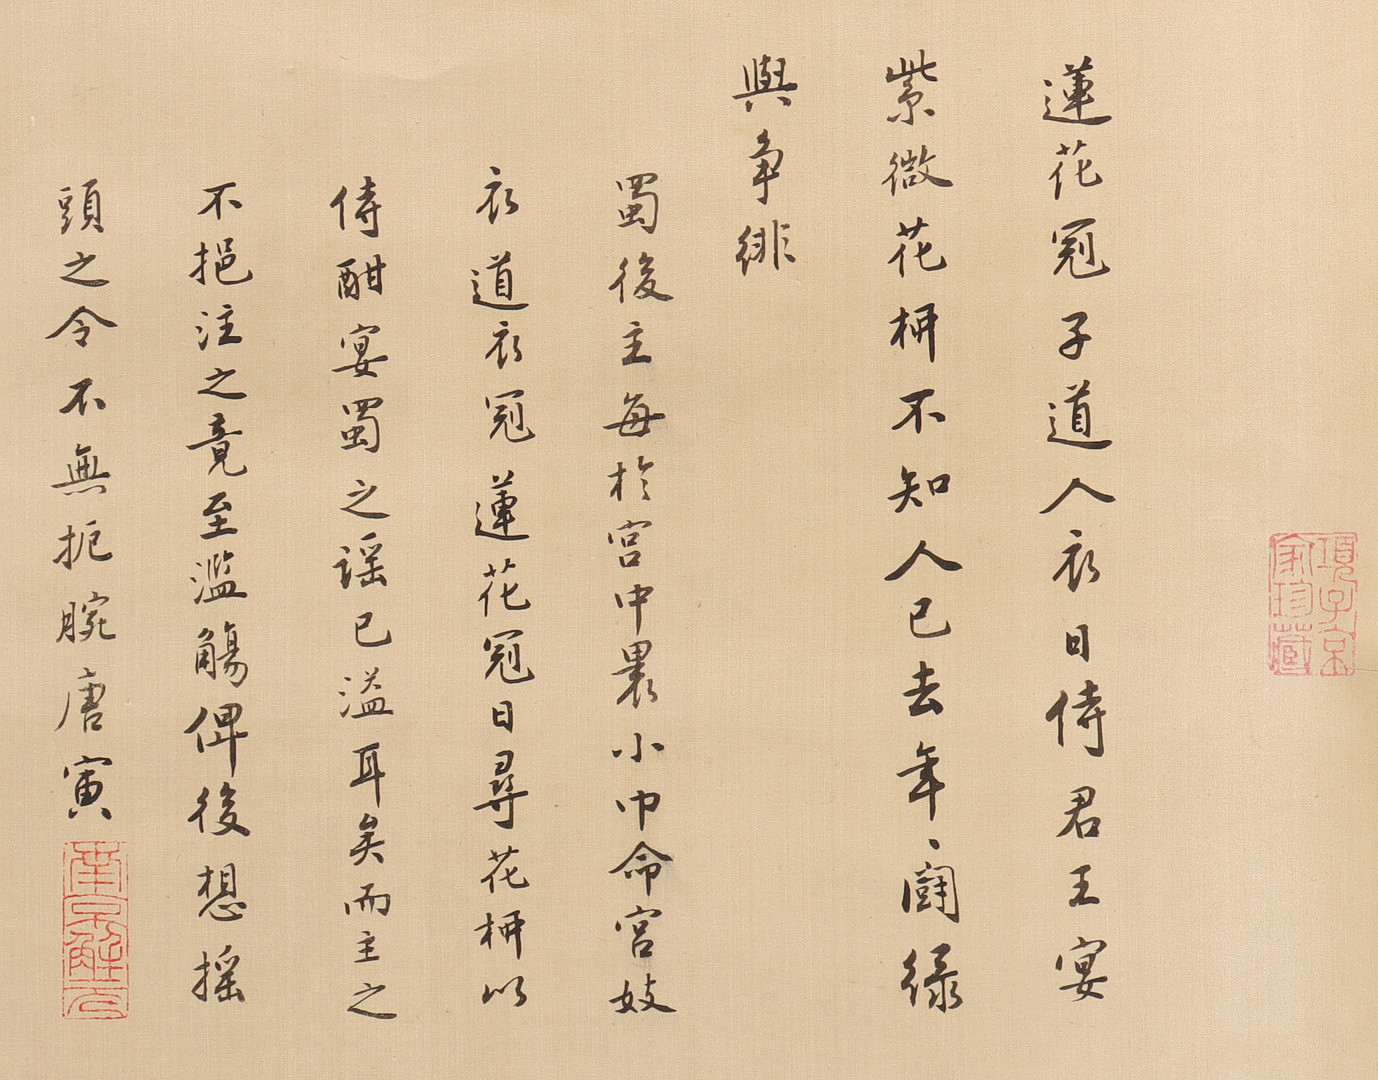 蓮花冠子道人衣日侍君王宴
紫微花柳不知人已去年〻鬪綠
與爭緋
蜀後主每於宮中裹小巾命宮妓
衣道衣冠蓮花冠日尋花柳以
侍酣宴蜀之謡已溢耳矣而主之
不挹注之竟至濫觴俾後想摇
頭之令不無扼腕唐寅
南京解元
項子京
家珍藏